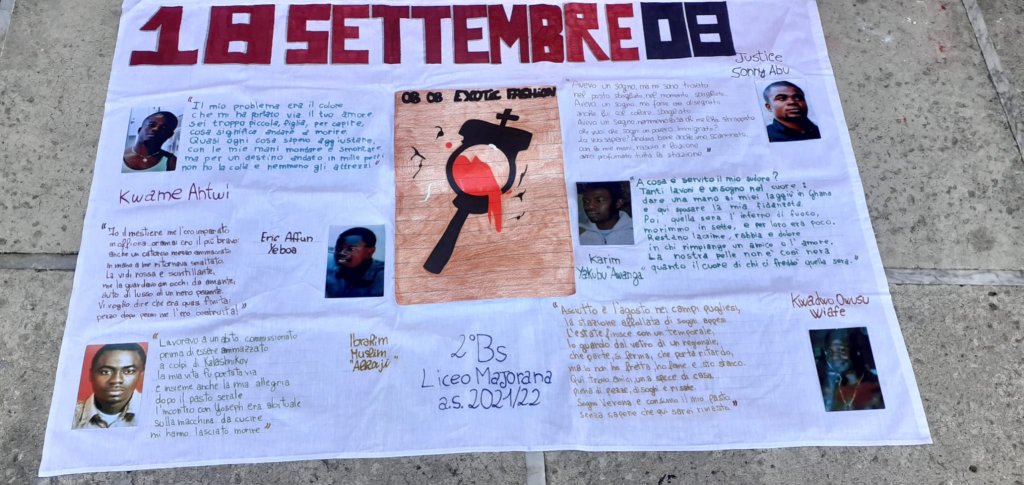 18 SETTEMBRE 08
OB OB EXOTIC FASHION
Justice
Sonny Abu
"Il mio problema era il colore
che mi ha portato via il tuo amore
sei troppo piccola, figlia, per capire,
cosa significa andare a morire.
Quasi ogni cosa sapevo aggiustare,
con le mie mani montare e smontare,
ma per un destino andato in mille pezzi
non ho la colla e nemmeno gli attrezzi"
Kwame Antwi
"Avevo un sogno, ma mi sono trovato
nel posto sbagliato, nel momento sbagliato.
Avevo un sogno, ma forse era disegnato
anche lui col colore sbagliato.
"A cosa è servito il mio sudore?
Tanti lavori e un sogno nel cuore:
dare una mano ai miei laggiù in Ghana
e qui sposare la mia fidanzata.
Poi, quella sera l'inferno di fuoco,
morimmo in sette, e per loro era poco.
Restano lacrime, rabbia e dolore
in chi rimpiange un amico o l'amore.
La nostra pelle non è così nera
quanto il cuore di chi ci freddò quella sera."
Karim
Yakubu "Awanga"
"Io il mestiere me l'ero imparato
in officina oramai ero il più bravo:
anche un catorcio mezzo ammaccato
in mano a me ritornava smaltato.
La vidi rossa e scintillante,
me la guardavo con occhi da amante,
auto di lusso di un nero pezzente.
Vi voglio dire che era quasi finita:
pezzo dopo pezzo me l'ero costruita!"
Eric Affun
Yeboa
"Lavoravo a un abito commissionato
prima di essere ammazzato
a colpi di Kalashnikov
la mia vita fu portata via
e insieme anche la mia allegria
dopo il pasto serale
l'incontro con Yoseph era abituale
sulla macchina da cucire
mi hanno lasciato morire"
Ibrahim
Muslim
2°Bs
Liceo Majorana
a.s. 2021/22
"Asciutto è l'agosto nei campi pugliesi,
la stazione affollata di sogni appesi
L'estate finisce con un temporale,
lo guardo dal vetro di un regionale,
che parte, si ferma, che porta ritardo,
ma io non ho fretta, ho fame e sto stanco.
Qui trovo amici, una specie di casa,
piena di pezze, di sogni e risate.
senza sapere che qui sarei rimasto."
Kwadwo Owusu
Wiafe